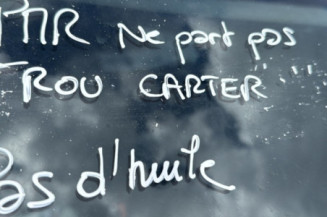 MR Ne part pas
TROU CARTER
Pas d'huile